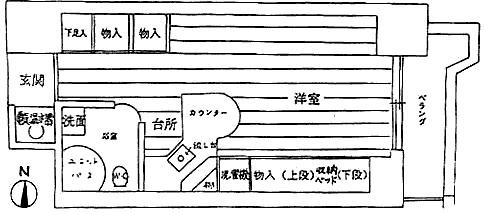 下足入
物入
物入
玄関
洋室
ベランダ
カウンター
台所
洗面
浴室
流し台
ユニット
バス
WC
洗置機
物入(上段)
収納
ベッド
(下段)
N